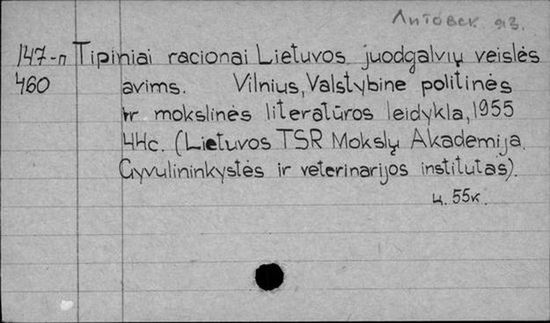 Литовск. яз.
147-п Tipiniai racionai Lietuvos juodgalvių veislės
460 avims. Vilnius, Valstybine politinės
ir mokslinės literatūros leidykla, 1955
44c. (Lietuvos TSR Mokslų Akademija.
Gyvulininkystės ir veterinarijos institutas).
ц. 55к.